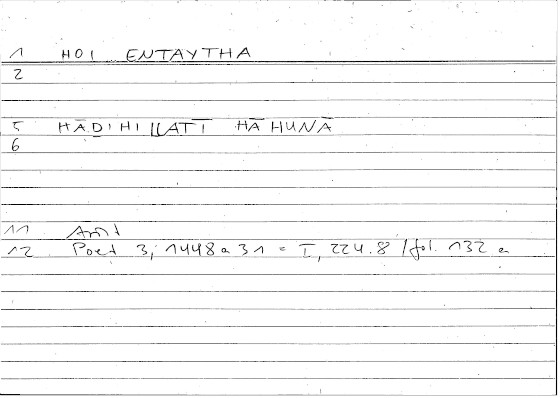 1 HOI ENTAYTHA
2
5 HĀḎIHI LLATĪ HĀHUNĀ
6
11 Arist
12 Poet 3, 1448a31 = I, 224.8 / fol. 132 a